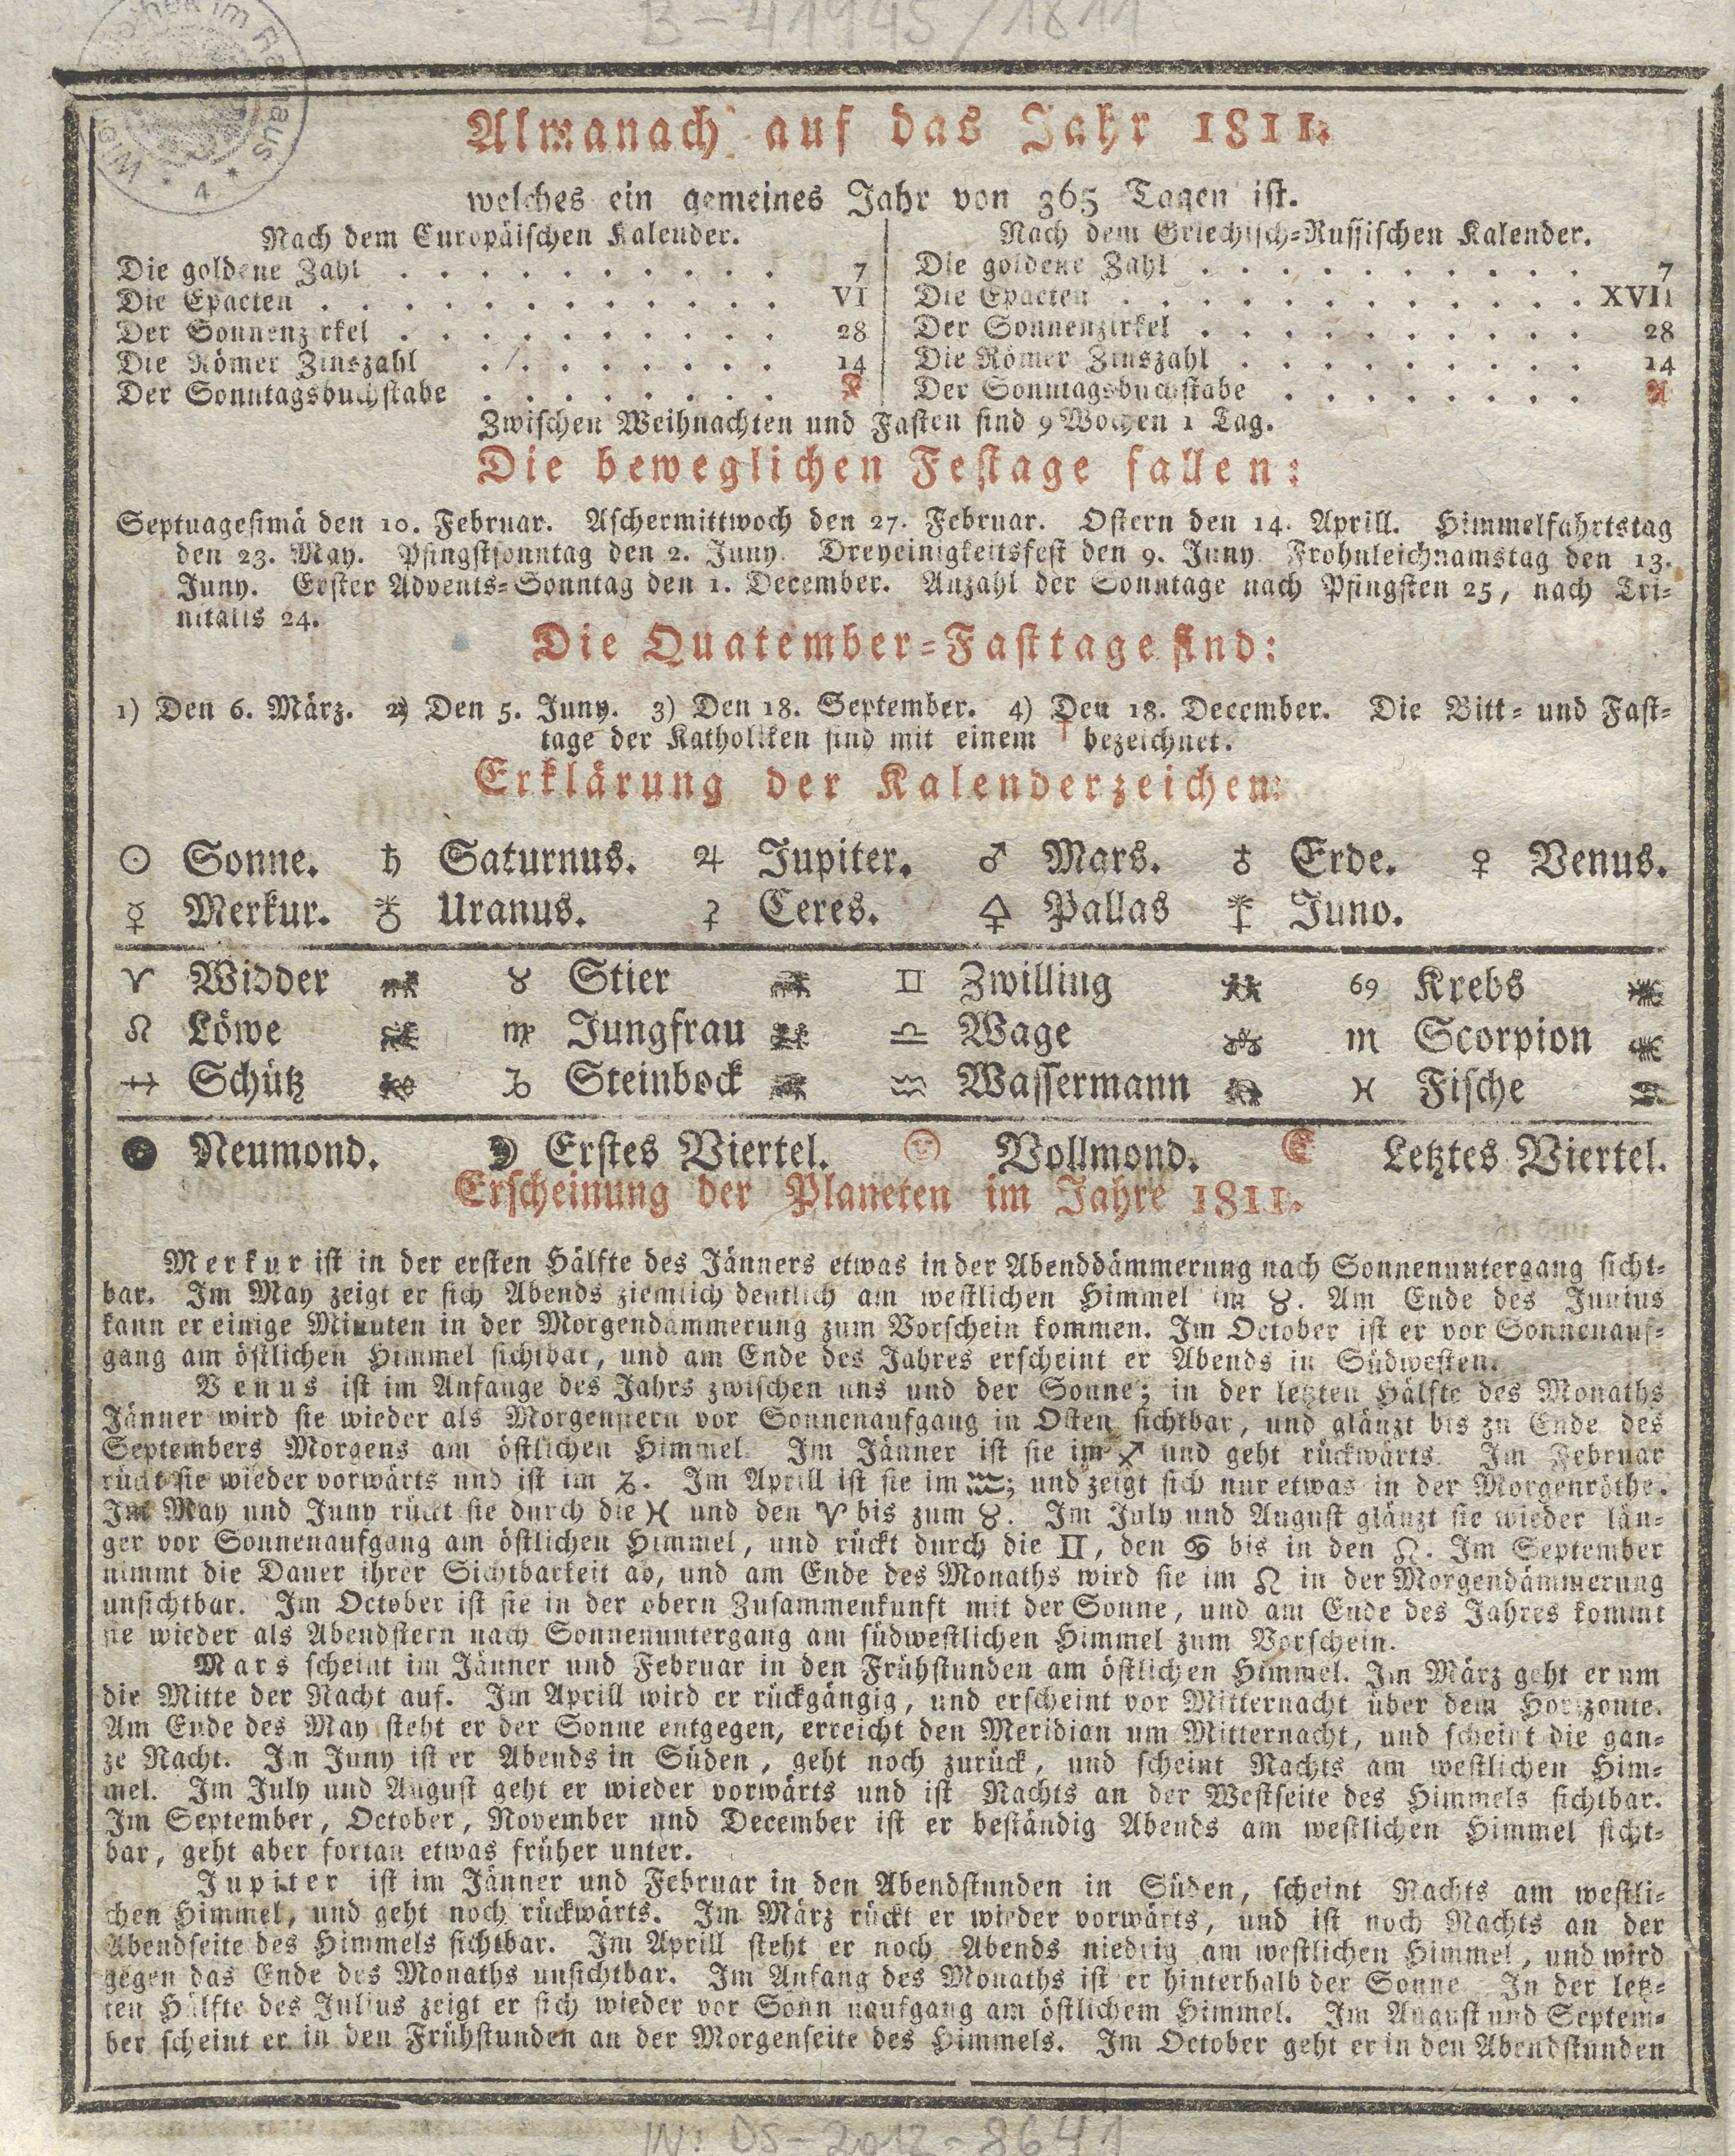 B-41945/1811
Almanach auf das Jahr 1811.
welches ein gemeines Jahr von 365 Tagen ist.
Nach dem Europäischen Kalender.
Die goldene Zahl . . . . . . . . . . 7
Die Epacten . . . . . . . . . . . . VI
Der Sonnenzirkel . . . . . . . . . . 28
Die Römer Zinszahl . . . . . . . . 14
Der Sonntagsbuchstabe . . . . . . . . F
Nach dem Griechisch-Russischen Kalender.
Die goldene Zahl . . . . . . . . . . 7
Die Epacten . . . . . . . . . . . . XVII
Der Sonnenzirkel . . . . . . . . . . 28
Die Römer Zinszahl . . . . . . . . . 14
Der Sonntagsbuchstabe . . . . . . . . A
Zwischen Weihnachten und Fasten sind 9 Wochen 1 Tag.
Die beweglichen Festage fallen:
Septuagesimä den 10. Februar. Aschermittwoch den 27. Februar. Ostern den 14. Aprill. Himmelfahrtstag
den 23. May. Pfingstsonntag den 2. Juny. Dreyeinigkeitsfest den 9. Juny. Frohnleichnamstag den 13.
Juny. Erster Advents-Sonntag den 1. December. Anzahl der Sonntage nach Pfingsten 25, nach Tri-
nitatis 24.
Die Quatember-Fasttage sind:
1) Den 6. März. 2) Den 5. Juny. 3) Den 18. September. 4) Den 18. December. Die Bitt- und Fast-
tage der Katholiken sind mit einem † bezeichnet.
Erklärung der Kalenderzeichen:
☉ Sonne. ♄ Saturnus. ♃ Jupiter. ♂ Mars. ♁ Erde. ♀ Venus.
☿ Merkur. Uranus. ⚳ Ceres. ⚴ Pallas ⚵ Juno.
♈ Widder ♉ Stier ♊ Zwilling ♋ Krebs
♌ Löwe ♍ Jungfrau ♎ Wage ♏ Scorpion
♐ Schütz ♑ Steinbock ♒ Wassermann ♓ Fische
Neumond. Erstes Viertel. Vollmond. Letztes Viertel.
Erscheinung der Planeten im Jahre 1811.
Merkur ist in der ersten Hälfte des Jänners etwas in der Abenddämmerung nach Sonnenuntergang sicht-
bar. Im May zeigt er sich Abends ziemlich deutlich am westlichen Himmel im ♉. Am Ende des Junius
kann er einige Minuten in der Morgendämmerung zum Vorschein kommen. Im October ist er vor Sonnenauf-
gang am östlichen Himmel sichtbar, und am Ende des Jahres erscheint er Abends in Südwesten.
Venus ist im Anfange des Jahrs zwischen uns und der Sonne; in der letzten Hälfte des Monaths
Jänner wird sie wieder als Morgenstern vor Sonnenaufgang in Osten sichtbar, und glänzt bis zu Ende des
Septembers Morgens am östlichen Himmel. Im Jänner ist sie im ♐ und geht rückwärts. Im Februar
rückt sie wieder vorwärts und ist im ♑. Im Aprill ist sie im ♒; und zeigt sich nur etwas in der Morgenröthe.
Im May und Juny rückt sie durch die ♓ und den ♈ bis zum ♉. Im July und August glänzt sie wieder län-
ger vor Sonnenaufgang am östlichen Himmel, und rückt durch die ♊, den ♋ bis in den ♌. Im September
nimmt die Dauer ihrer Sichtbarkeit ab, und am Ende des Monaths wird sie im ♌ in der Morgendämmerung
unsichtbar. Im October ist sie in der obern Zusammenkunft mit der Sonne, und am Ende des Jahres kommt
sie wieder als Abendstern nach Sonnenuntergang am südwestlichen Himmel zum Vorschein.
Mars scheint im Jänner und Februar in den Frühstunden am östlichen Himmel. Im März geht er um
die Mitte der Nacht auf. Im Aprill wird er rückgängig, und erscheint vor Mitternacht über dem Horizonte.
Am Ende des May steht er der Sonne entgegen, erreicht den Meridian um Mitternacht, und scheint die gan-
ze Nacht. Im Juny ist er Abends in Süden, geht noch zurück, und scheint Nachts am westlichen Him-
mel. Im July und August geht er wieder vorwärts und ist Nachts an der Westseite des Himmels sichtbar.
Im September, October, November und December ist er beständig Abends am westlichen Himmel sicht-
bar, geht aber fortan etwas früher unter.
Jupiter ist im Jänner und Februar in den Abendstunden in Süden, scheint Nachts am westli-
chen Himmel, und geht noch rückwärts. Im März rückt er wieder vorwärts, und ist noch Nachts an der
Abendseite des Himmels sichtbar. Im Aprill steht er noch Abends niedrig am westlichen Himmel, und wird
gegen das Ende des Monaths unsichtbar. Im Anfang des Monaths ist er hinterhalb der Sonne. In der letz-
ten Hälfte des Julius zeigt er sich wieder vor Sonnenaufgang am östlichem Himmel. Im August und Septem-
ber scheint er in den Frühstunden an der Morgenseite des Himmels. Im October geht er in den Abendstunden
IN: DS-2012-8641